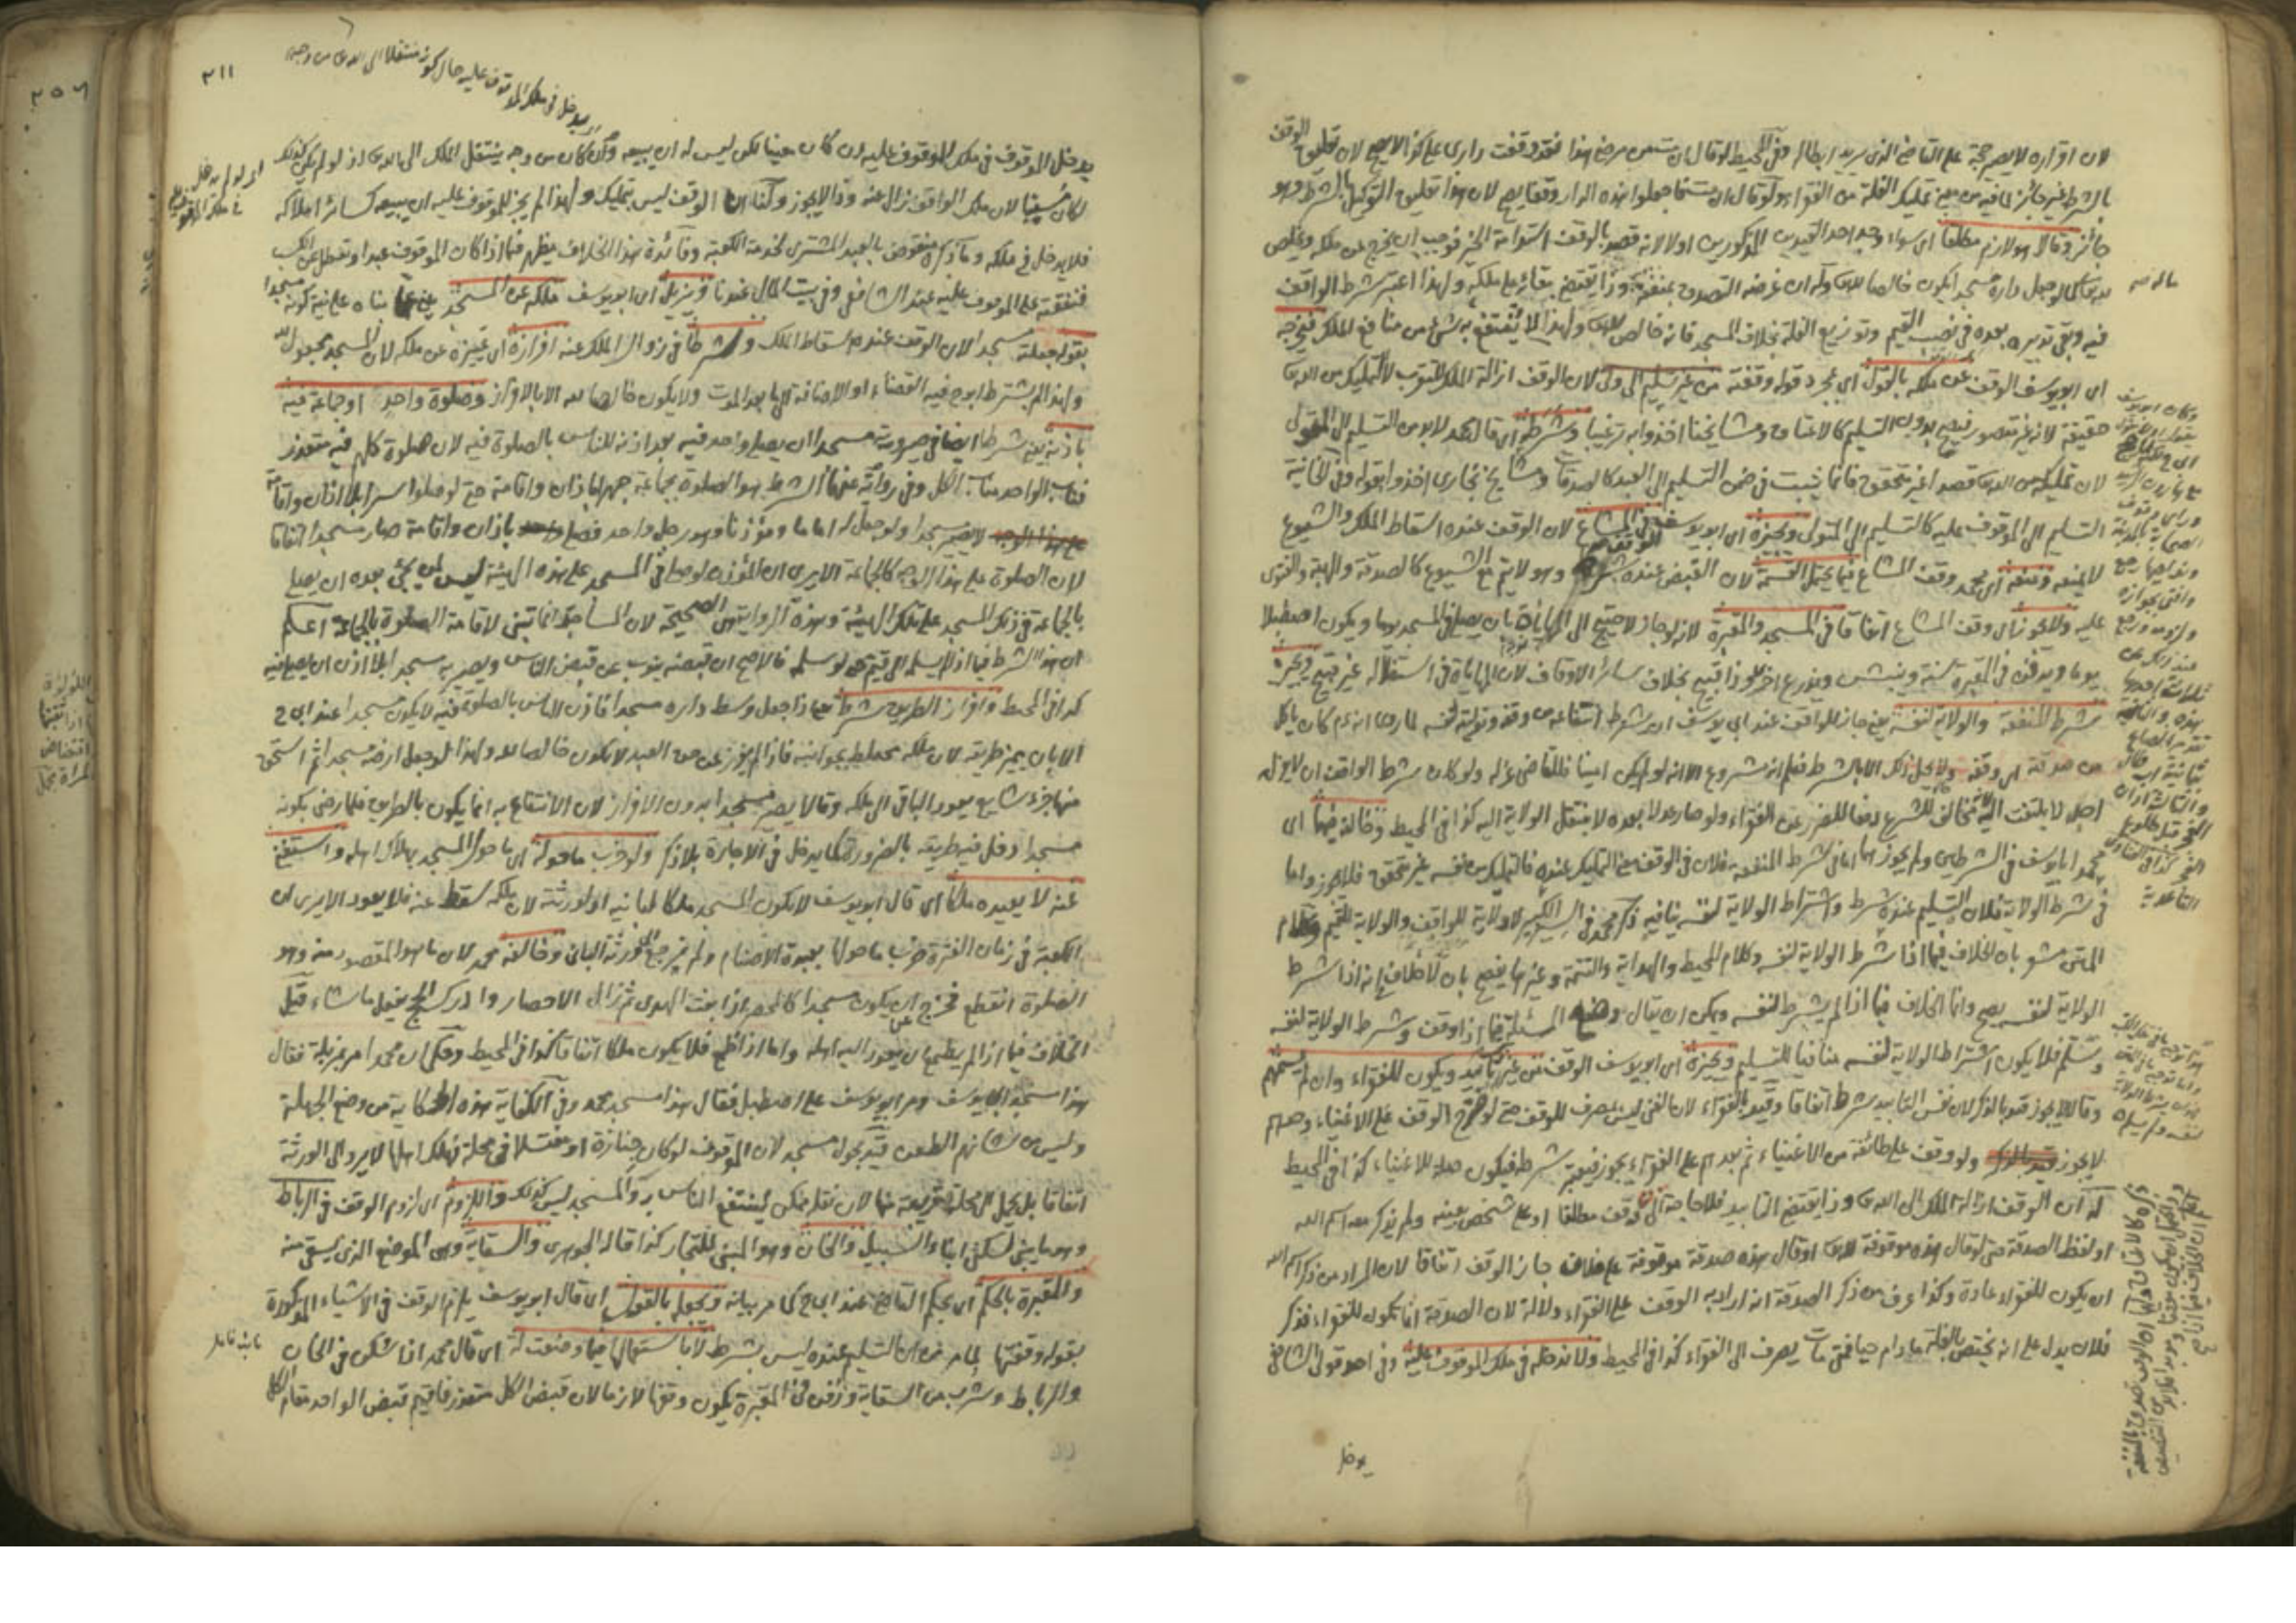 لان اقراره لا يصير حجة على القاضي الذي يريد ابطاله وفي المحيط لو قال ان مت من مرضي هذا فقد وقفت داري على كذا لا يصح لان تعليق الوقف
بالشرط غير جائز لما فيه من معنى تمليك الغلة من الفقراء ولو قال ان مت فاجعلوا هذه الدار وقفا يصح لان هذا تعليق التوكيل بالشرط وهو
جائز وقالا هو لازم مطلقا اي سواء وجد احد القيدين المذكورين اولا لانه قصد بالوقف استدامة الخير فوجب ان يخرج عن ملكه ويخلص
لله تعالى كما لو جعل داره مسجدا يكون خالصا لله تعالى وله ان غرضه التصدق بمنفعته وذا يقتضي بقائه على ملكه ولهذا اعتبر شرط الواقف
فيه وبقي تدبيره بعده في نصب القيم وتوزيع الغلة بخلاف المسجد فانه خالص لله تعالى ولهذا لا ينتفع به بشيء من منافع الملك فيخرجه
اي ابو يوسف الوقف عن ملكه بالقول اي بمجرد قوله وقفته من غير تسليم الى ولي لان الوقف ازالة الملك للتقرب لا التمليك من الله تعالى
حقيقة لانه غير متصور فيصح بدون التسليم كالاعتاق ومشايخنا اخذوا به ترغيبا وشرطه اي قال محمد لا بد من التسليم الى المتولي
لان تمليكه من الله تعالى قصدا غير متحقق فانما يثبت في ضمن التسليم الى العبد كالصدقات ومشايخ بخارى اخذوا بقوله وفي الخانية
التسليم الى الموقوف عليه كالتسليم الى المتولي ويجيزه اي ابو يوسف في المشاع لان الوقف عنده اسقاط الملك والشيوع
لا يمنعه ومنعه اي محمد وقف المشاع فيما يحتمل القسمة لان القبض عنده شرط وهو لا يتم مع الشيوع كالصدقة والهبة والفتوى
عليه ولا يجوزان وقف المشاع اتفاقا في المسجد والمقبرة لانه لو جاز لاحتيج الى المهاياة بان يصلى في المسجد يوما ويكون اصطبلا
يوما ويدفن في المقبرة سنة وينبش ويزرع اخرى وذا قبيح بخلاف سائر الاوقاف لان المهاياة في استغلاله غير قبيح ويجيز
شرط المنفعة والولاية لنفسه يعني جاز للواقف عند ابي يوسف ان يشرط انتفاعه من وقفه وتوليته لنفسه لما روي انه عم كان يأكل
من صدقة اي وقفه ولا يحل ذلك الا بالشرط فعلم انه مشروع الا انه لو لم يكن امينا فللقاضي عزله ولو كان شرط الواقف ان لا يعزله
اصلا لا يلتفت اليه لانه مخالف للشرع دفعا للضرر عن الفقراء ولو صار عدلا بعده لا ينتقل الولاية اليه كذا في المحيط وخالفه فيهما اي
محمد ابا يوسف في الشرطين ولم يجوزهما اما في شرط المنفعة فلان في الوقف معنى التمليك عنده فالتمليك من نفسه غير متحقق فلا يجوز واما
في شرط الولاية فلان التسليم عنده شرط واشتراط الولاية لنفسه ينافيه ذكر محمد في السير الكبير لا ولاية للواقف والولاية للقيم وكلام
المتن مشعر بان الخلاف فيما اذا شرط الولاية لنفسه وكلام المحيط والهداية والتتمة وغيرها يفصح بان لا خلاف في انه اذا شرط
الولاية لنفسه يصح وانما الخلاف فيما اذا لم يشرط لنفسه ويمكن ان يقال وضع المسئلة فيما اذا وقف وشرط الولاية لنفسه
وسلم فلا يكون اشتراط الولاية لنفسه منافيا للتسليم ويجيزه اي ابو يوسف الوقف من غير تأبيد ويكون للفقراء وان لم يسمهم
وقالا لا يجوز قيد بالذكر لان نفس التأبيد شرط اتفاقا وقيد بالفقراء لان الغني ليس بمصرف للوقف حتى لو صرح الوقف على الاغنياء وحدهم
لا يجوز ولو وقف على طائفة من الاغنياء ثم بعدهم على الفقراء يجوز فيعتبر شرطه فيكون صلة للاغنياء كذا في المحيط
له ان الوقف ازالة الملك الى الله تعالى وذا يقتضي التأبيد فلا حاجة الى وقف مطلقا او على شخص بعينه ولم يذكر معه اسم الله
او لفظ الصدقة حتى لو قال هذه موقوفة لله تعالى او قال هذه صدقة موقوفة على فلان جاز الوقف اتفاقا لان المراد من ذكر اسم الله
ان يكون للفقراء عادة وكذا عرف من ذكر الصدقة انه اراد به الوقف على الفقراء ودلالة لان الصدقة انما تكون للفقراء فذكر
فلان يدل على انه يختص بالغلة ما دام حيا فمتى مات يصرف الى الفقراء كذا في المحيط ولا ندخله في ملك الموقوف عليه وفي احد قولي الشافعي
يدخل
٣١١
يدخل الموقوف في ملك الموقوف عليه ان كان معينا لكن ليس له ان يبيعه وان كان من وجه ينتقل الملك الى الله تعالى اذ لو لم يكن كذلك
لكان سيبا لان ملك الواقف زال عنه وذا لا يجوز ولنا ان الوقف ليس بتمليك ولهذا لم يجز للموقوف عليه ان يبيعه كسائر املاكه
فلا يدخل في ملكه وما ذكره منقوض بالعبد المشترى لخدمة الكعبة وفائدة هذا الخلاف يظهر فيما اذا كان الموقوف عبدا وتعطل عن الكسب
فنفقته على الموقوف عليه عند الشافعي وفي بيت المال عندنا ويزيل اي ابو يوسف ملكه عن المسجد يعني عما بناه على نية كونه مسجدا
بقوله جعلته مسجدا لان الوقف عنده اسقاط الملك وشرطا في زوال الملك عنه افرازه اي تمييزه عن ملكه لان المسجد مجعول لله
ولهذا لم يشترط ابو ح فيه القضاء او الاضافة الى ما بعد الموت ولا يكون خالصا لله الا بالافراز وصلوة واحد او جماعة فيه
باذنه يعني شرطا ايضا في صيرورته مسجدا ان يصلي واحد فيه بعد اذنه للناس بالصلوة فيه لان صلوة كلهم فيه متعذر
فناب الواحد مناب الكل وفي رواية عنهما الشرط هو الصلوة بجماعة جهرا باذان واقامة حتى لو صلوا سرا بلا اذان واقامة
لا يصير مسجدا ولو جعل له اماما ومؤذنا وهو رجل واحد فصلى باذان واقامة صار مسجدا اتفاقا
لان الصلوة على هذا الوجه كالجماعة الا يرى ان المؤذن لو صلى في المسجد على هذه الهيئة ليس لمن يجيء بعده ان يصلي
بالجماعة في ذلك المسجد على تلك الهيئة وهذه الرواية هي الصحيحة لان المساجد انما تبنى لاقامة الصلوة بالجماعة اعلم
ان هذا الشرط فيما اذا لم يسلم الى قيم ولو سلم فالاصح ان قبضه ينوب عن قبض الناس ويصير به مسجدا بلا اذن ان يصلى فيه
كذا في المحيط وافراز الطريق شرط فيما اذا جعل وسط داره مسجدا فاذن للناس بالصلوة فيه لا يكون مسجدا عند ابي ح
الا بان يميز طريقه لان ملكه محيط بجوانبه فاذا لم يفرز عن حق العبد لا يكون خالصا لله ولهذا لو جعل ارضه مسجدا ثم استحق
منها جزء شايع يعود الباقي الى ملكه وقالا يصير مسجدا بدون الافراز لان الانتفاع به انما يكون بالطريق فلما رضي بكونه
مسجدا دخل فيه طريقه بالضرورة كما يدخل في الاجارة بلا ذكر ولو خرب ما حوله اي ما حول المسجد بهلاك اهله واستغني
عنه لا يعيده ملكا اي قال ابو يوسف لا يكون المسجد ملكا لبانيه او لورثته لان ملكه سقط عنه فلا يعود الا يرى ان
الكعبة في زمان الفترة خرب ما حولها بعبدة الاصنام ولم يرجع الى ورثة الباني وخالفه محمد لان ما هو المقصود منه وهو
الصلوة انقطع فخرج عن ان يكون مسجدا كالمحصر اذا بعث الهدي ثم زال الاحصار وادرك الحج يفعل ما شاء قيل
الخلاف فيما اذا لم يطمع ان يعود اليه اهله واما اذا طمع فلا يكون ملكا اتفاقا كذا في المحيط وحكي ان محمدا مر بمزبلة فقال
هذا مسجد ابي يوسف ومر ابو يوسف على اصطبل فقال هذا مسجد محمد وفي الكفاية هذه الحكاية من وضع الجهلة
وليس من شانهم الطعن قيد بحول مسجد لان الموقوف لو كان جنازة او مغتسلا في محلة فهلك اهلها لا يرد الى الورثة
اتفاقا بل يحمل الى محلة قريبة منها لان نقله ممكن لينتفع الناس به والمسجد ليس كذلك واللزوم اي لزوم الوقف في الرباط
وهو ما يبنى لسكنى ابناء السبيل والخان وهو المبني للتجار كذا قاله الجوهري والسقاية وهي الموضع الذي يسقى منه
والمقبرة بالحكم اي بحكم القاضي عند ابي ح كما مر بيانه ويجعله بالقول اي قال ابو يوسف يلزم الوقف في الاشياء المذكورة
بقوله وقفتها لما مر من ان التسليم عنده ليس بشرط لا باستعمالها فيما وضعت له اي قال محمد اذا سكن في الخان
والرباط وشرب من السقاية ودفن في المقبرة يكون وقفا لازما لان قبض الكل متعذر فاقيم قبض الواحد مقام الكل